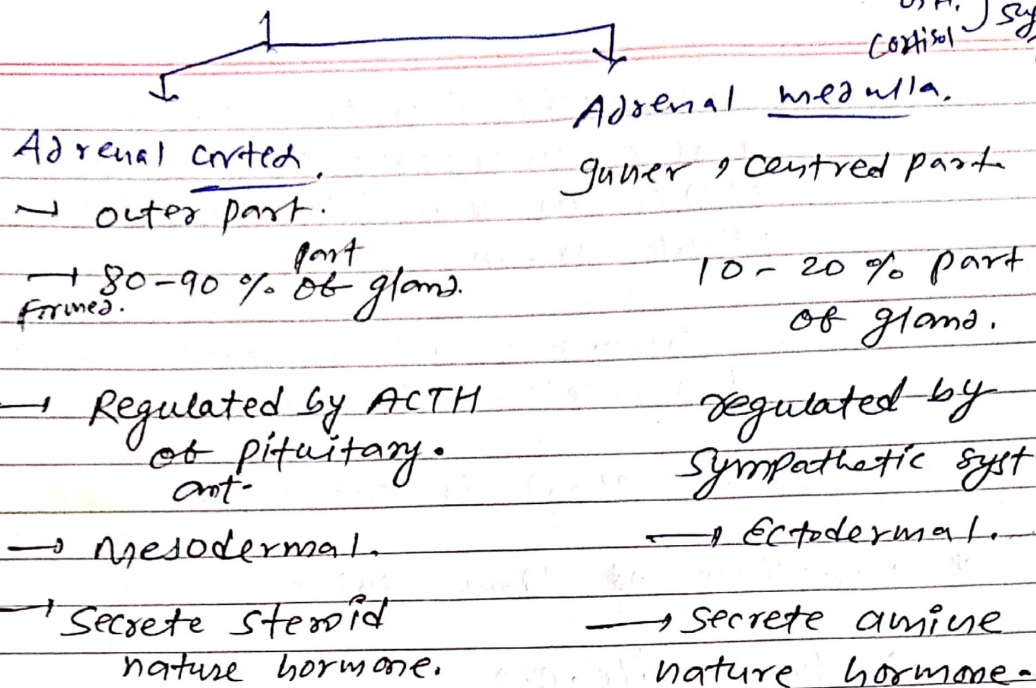 Cortisol
Adrenal cortex.
→ outer part.
→ 80-90 % part of gland.
formed.
→ Regulated by ACTH
of pituitary.
ant-
→ Mesodermal.
→ Secrete steroid
nature hormone.
Adrenal medulla.
Inner, centred part
10 - 20 % part
of gland.
regulated by
Sympathetic syst
→ Ectodermal.
→ secrete amine
nature hormone.